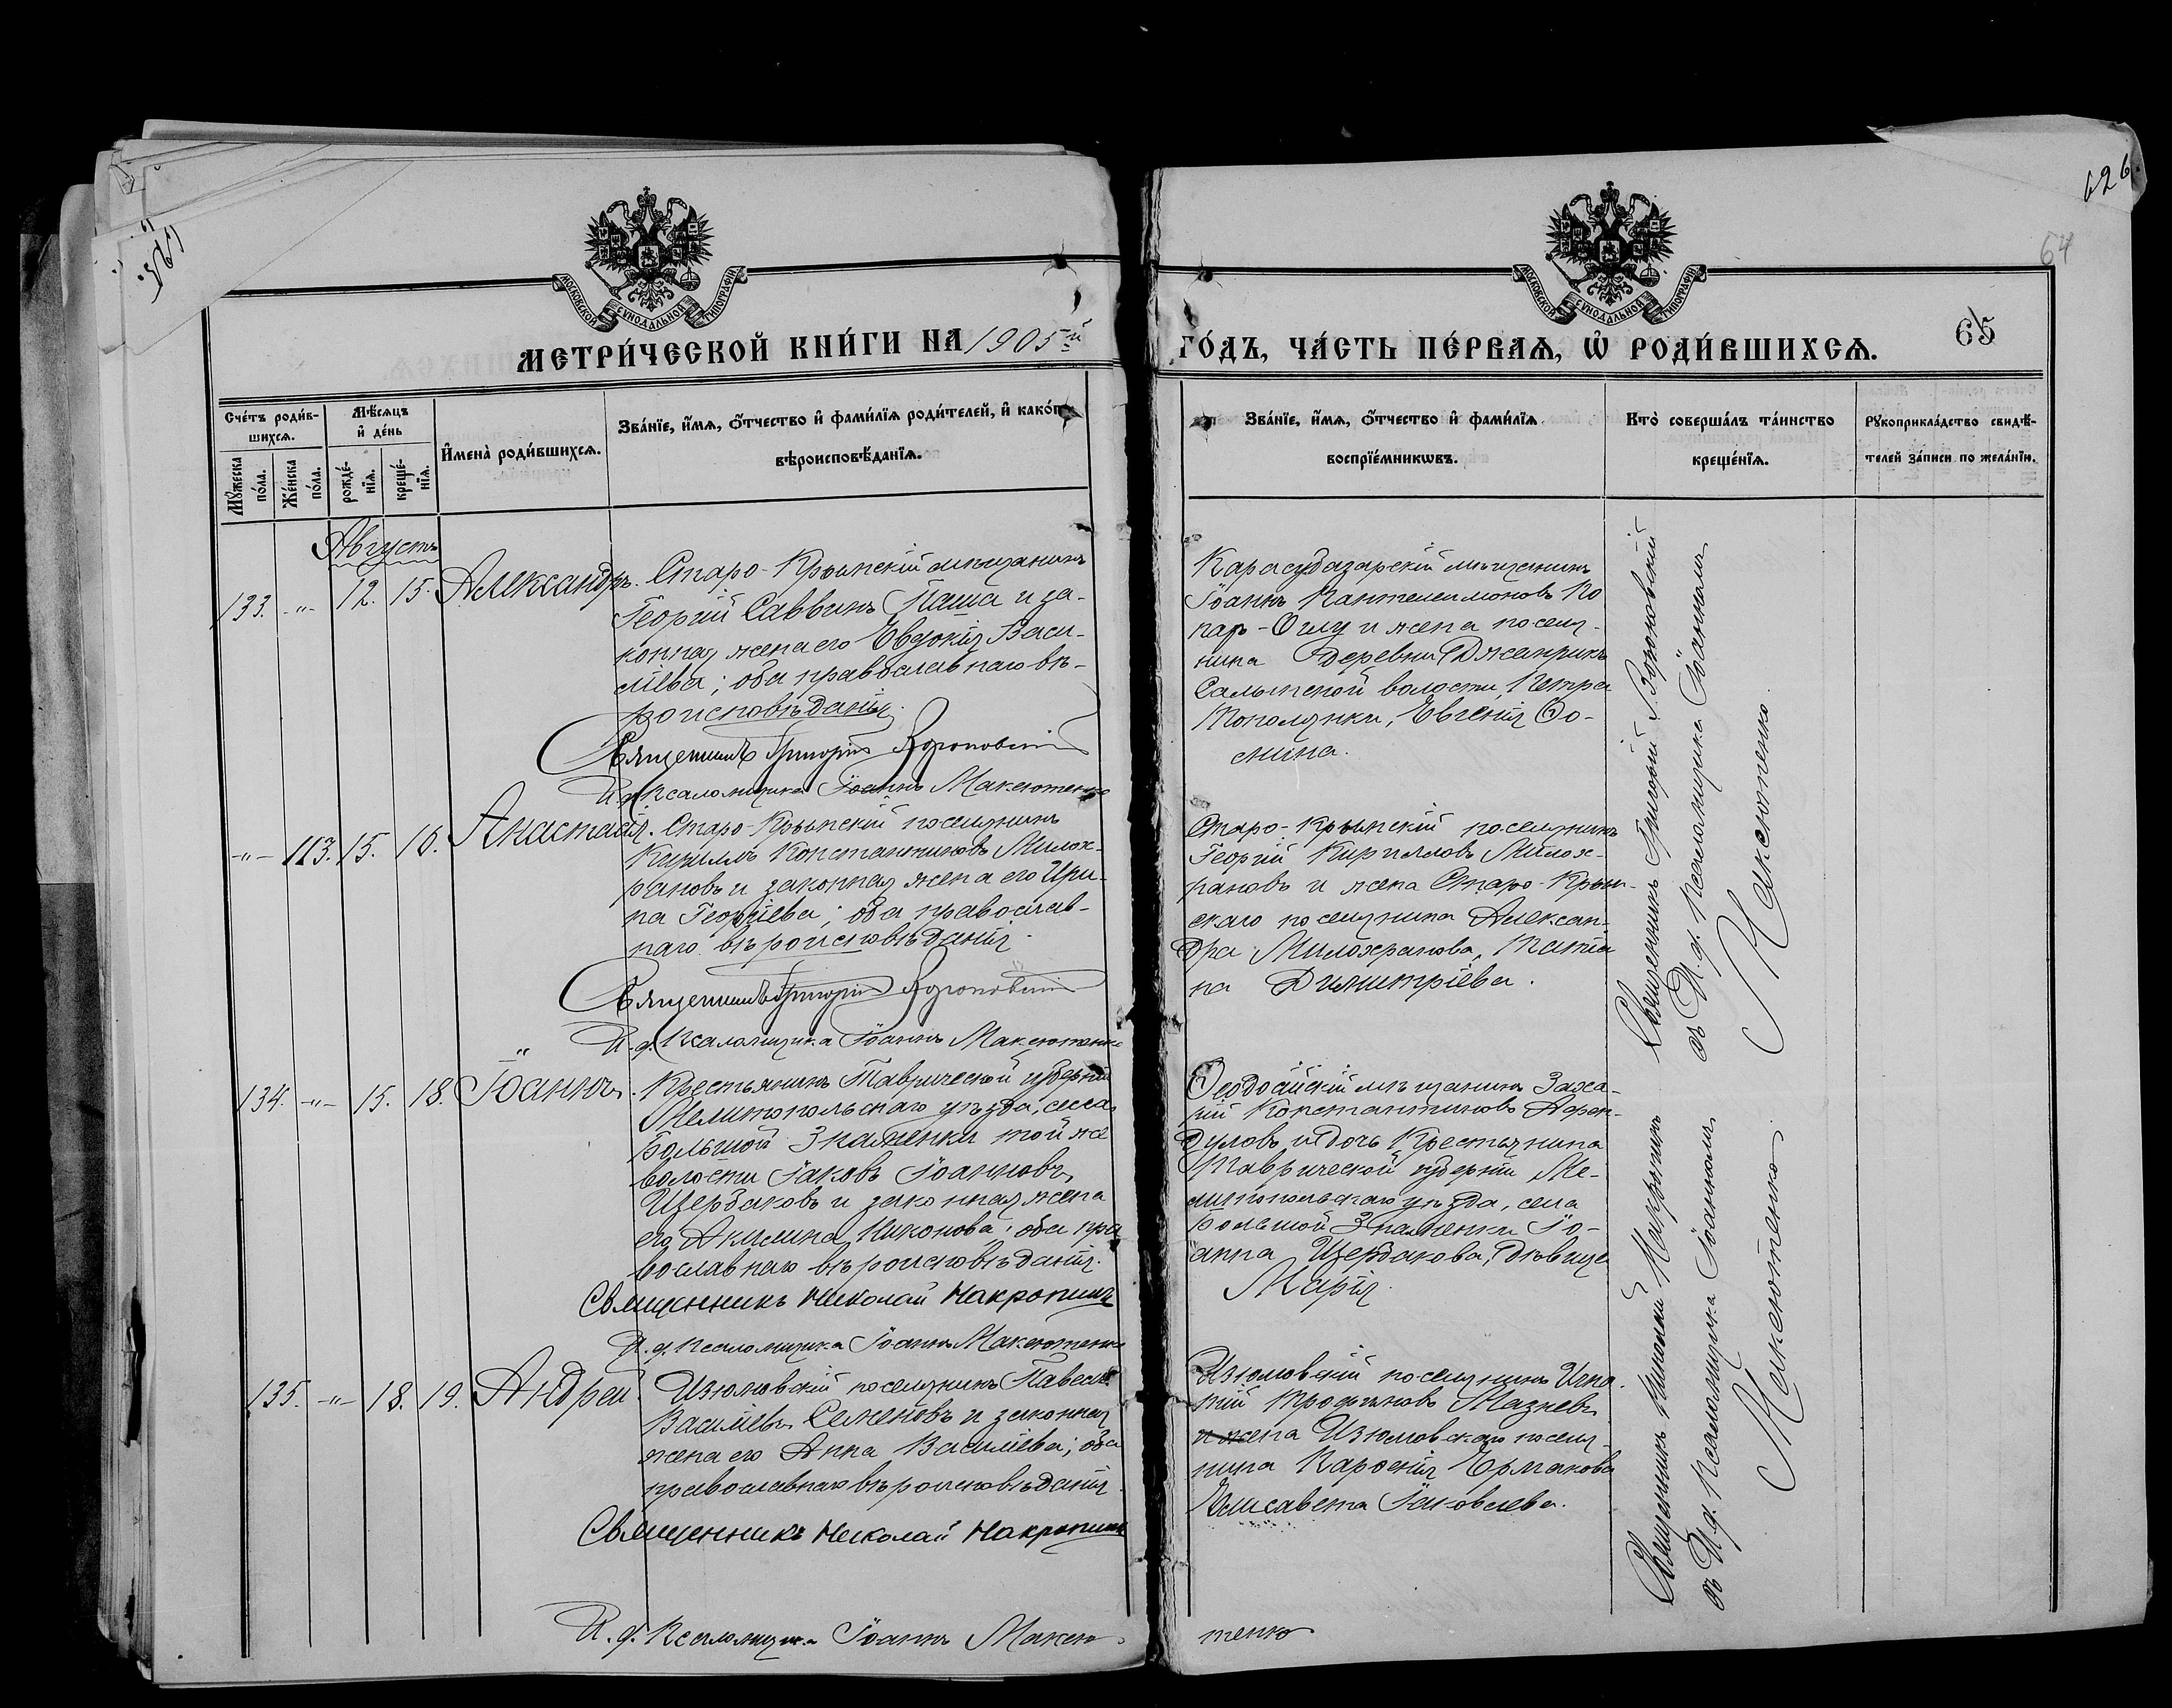 626.
64
65
МОСКОВСКОЙ СѴНОДАЛЬНОЙ ТИПОГРАФІИ
МОСКОВСКОЙ СѴНОДАЛЬНОЙ ТИПОГРАФІИ
МЕТРИ́ЧЕСКОЙ КНИ́ГИ НА 1905й
ГО́ДЪ, ЧА́СТЬ ПЕ́РВАѦ, Ѡ҆ РОДИ́ВШИХСѦ.
Сче́тъ роди́в-
шихсѧ.
Мꙋ́жеска по́ла.
Же́нска по́ла.
Мѣ́сѧцъ
и҆ де́нь
рожде́-
нїѧ.
креще́-
нїѧ.
И҆мена̀ роди́вшихсѧ.
Зва́нїе, и҆́мѧ, ѻ҆́тчество и҆ фами́лїѧ роди́телей, и҆ како́гѡ
вѣроисповѣ́данїѧ.
Зва́нїе, и҆́мѧ, ѻ҆́тчество и҆ фами́лїѧ
воспрїе́мникѡвъ.
Кто̀ соверша́лъ та́инство
креще́нїѧ.
Рꙋкоприкла́дство свидѣ́-
телей за́писи по жела́нїю.
Августъ
133. -"- 12. 15. Александръ.
Старо-Крымскій мѣщанинъ
Георгій Саввинъ Паша и за-
конная жена его Евдокія Васи-
ліева; оба православнаго вѣ-
роисповѣданія.
Священникъ Григорій Вороновскій
И. д. Псаломщика Іоаннъ Максютенко
Карасубазарскій мѣщанинъ
Іоаннъ Пантелеимоновъ По
пар-Оглу и жена поселя-
нина деревни Джанрикъ
Салынской волости, Петра
Тополянки, Евгенія Ѳо-
мина.
-"- 113. 15. 16. Анастасія.
Старо-Крымскій поселянинъ
Кириллъ Константиновъ Милох-
рановъ и законная жена его Ири-
на Георгіева; оба православ-
наго вѣроисповѣданія.
Священникъ Григорій Вороновскій
И. д. Псаломщика Іоаннъ Максютенко
Старо-Крымскій поселянинъ
Георгій Кирилловъ Милох-
рановъ и жена Старо-Крым-
скаго поселянина Алексан-
дра Милохранова,
на Димитріева.
Священникъ Григорій Вороновскій
съ И. д. Псаломщика Іоанномъ
Максютенко
134. -"- 15. 18. Іоаннъ.
Крестьянинъ Таврической губерніи
Мелитопольскаго уѣзда, села
Большой Знаменки той же
волости Іаковъ Іоанновъ
Щербаковъ и законная жена
его Акилина Никонова; оба пра
вославнаго вѣроисповѣданія.
Священникъ Николай Макропинъ
И. д. Псаломщика Іоаннъ Максютенко
Ѳеодосійскій мѣщанинъ Заха-
рій Константиновъ Афен-
дуловъ и дочь Крестьянина
Таврической губерніи Ме-
литопольскаго уѣзда, села
Большой Знаменки Іо-
анна Щербакова, дѣвица
Марія.
135. -"- 18. 19. Андрей.
Изюмовскій поселянинъ Павелъ
Василіевъ Семеновъ и законная
жена его Анна Василіева; оба
православнаго вѣроисповѣданія
Священникъ Николай Макропинъ
И. д. Псаломщика Іоаннъ Максю-
тенко
Изюмовскій поселянинъ Игна-
тій Трофимовъ Мазневъ
и жена Изюмовскаго поселя-
нина Ермакова
Елисавета Іаковлева.
Священникъ Николай Макропинъ
съ И. д. Псаломщика Іоанномъ
Максютенко